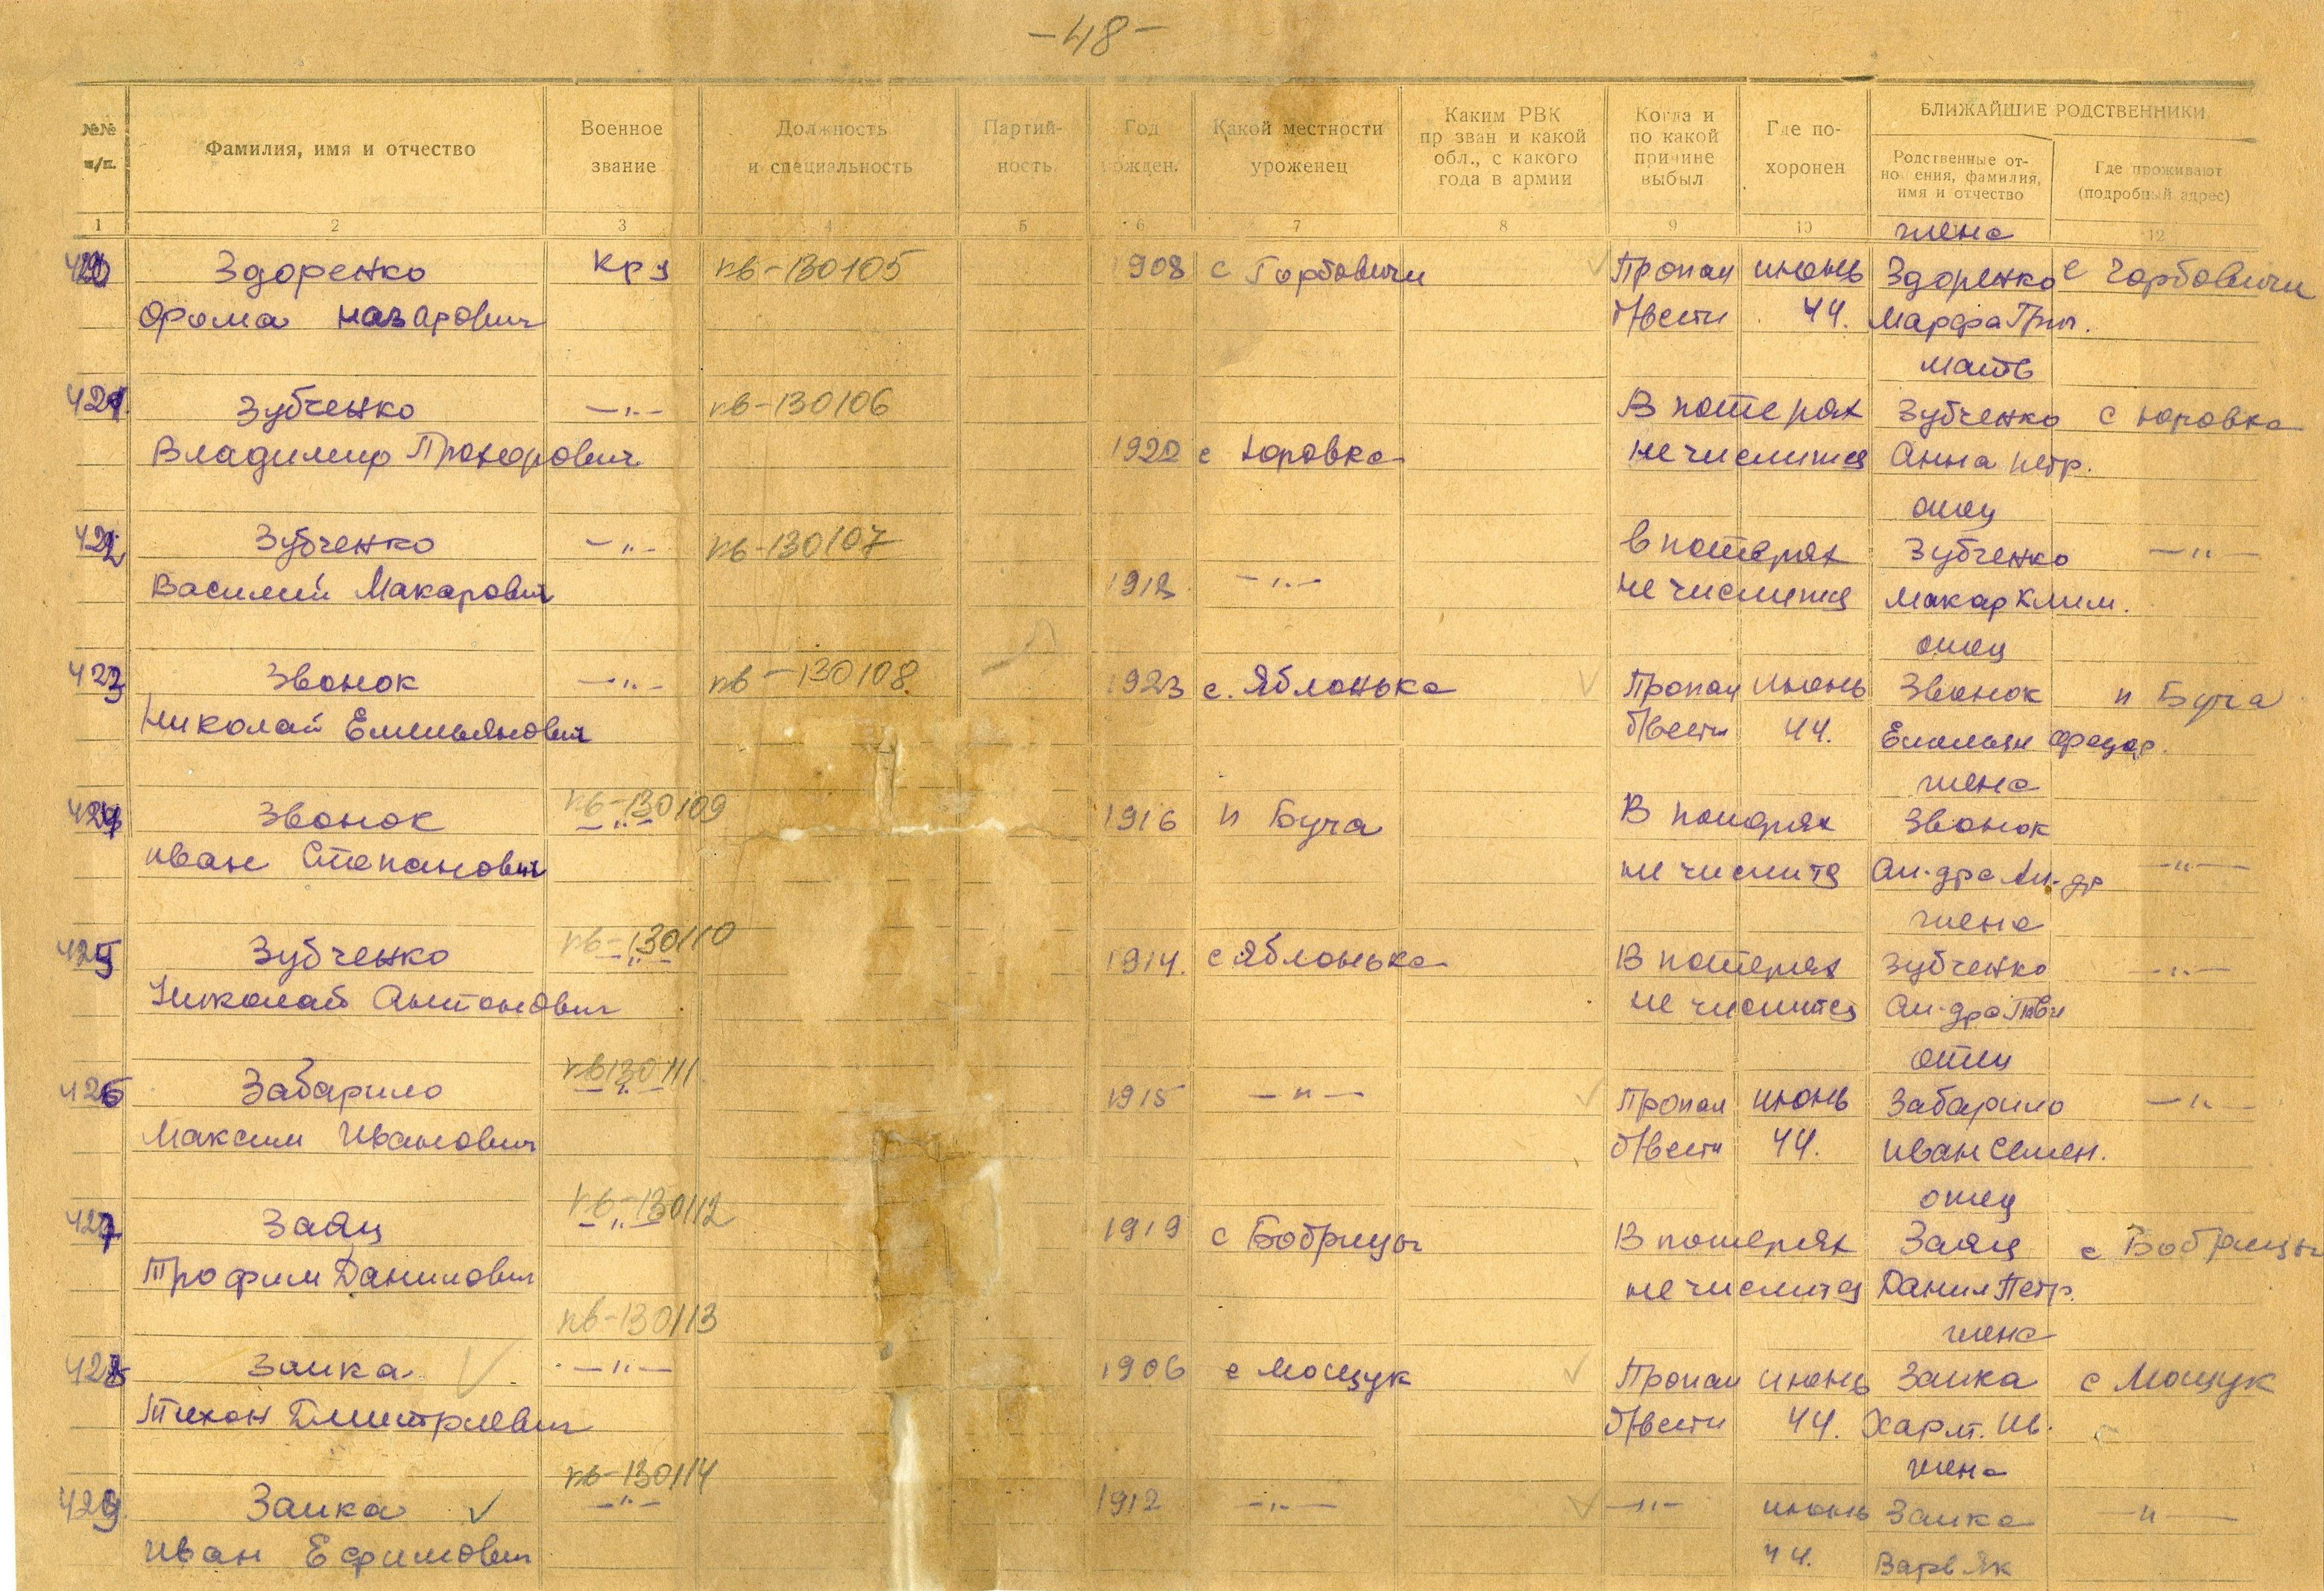 -48-
БЛИЖАЙШИЕ РОДСТВЕННИКИ
№№ п/п.
Фамилия, имя и отчество
Военное звание
Должность и специальность
Партийность
Год рожден.
Какой местности уроженец
Каким РВК пр зван и какой обл., с какого года в армии
Когда и по какой причине выбыл
Где похоронен
Родственные отно ения, фамилия, имя и отчество
Где проживают (подробный адрес)
1 2 3 4 5 6 7 8 9 10 11 12
жена
420 Здоренко кр-ц кв-130105 1908 с Горбовичи Пропал июнь Здоренко с Горбовичи
Фома Назарович б/вести 44. Марфа Григ.
мать
421. Зубченко —"— кв-130106 В потерях Зубченко с Юровка
Владимир Прохорович 1920 с Юровка не числится Анна Петр.
отец
422 Зубченко —"— кв-130107 В потерях Зубченко —"—
Василий Макарович 1918 —"— не числится Макар Клим.
отец
423 Звонок —"— кв-130108 1923 с. Яблонька Пропал июнь Звонок п Буча
Николай Емельянович б/вести 44. Емельян
жена
кв-130109
424 Звонок —"— 1916 п Буча В потерях Звонок
Иван Степанович не числится Ал-дра Ал-др —"—
жена
кв-130110
425 Зубченко —"— 1914. с Яблонька В потерях Зубченко —"—
Николай Антонович не числится Ал-дра
отец
кв130111
426 Забарило —"— 1915 —"— Пропал июнь Забарило —"—
Максим Иванович б/вести 44. Иван Семен.
отец
кв-130112
427 Заяц —"— 1919 с Бобрицы В потерях Заяц с Бобрицы
Трофим Данилович не числится Данил Петр.
кв-130113
жена
428 Заика —"— 1906 с Мощук Пропал июнь Заика с Мощук
Тихон Дмитриевич б/вести 44. Харит. Ив.
кв-130114
жена
429. Заика —"— 1912 —"— —"— июнь Заика —"—
Иван Ефимович 44. Варв Як